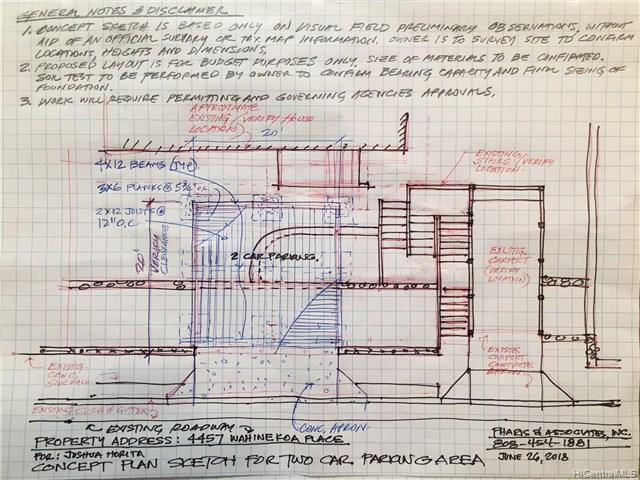 GENERAL NOTES & DISCLAIMER
1. CONCEPT SKETCH IS BASED ONLY ON VISUAL FIELD PRELIMINARY OBSERVATIONS, WITHOUT
AID OF AN OFFICIAL SURVEY OR TAX MAP INFORMATION. OWNER IS TO SURVEY SITE TO CONFIRM
LOCATIONS, HEIGHTS AND DIMENSIONS,
2. PROPOSED LAYOUT IS FOR BUDGET PURPOSES ONLY. SIZE OF MATERIALS TO BE CONFIRMED.
SOIL TEST TO BE PERFORMED BY OWNER TO CONFIRM BEARING CAPACITY AND FINAL SIZING OF
FOUNDATION.
3. WORK WILL REQUIRE PERMITTING AND GOVERNING AGENCIES APPROVALS,
APPROXIMATE
EXISTING (VERIFY HOUSE
LOCATION)
20'
4X12 BEAMS (TYP.)
3X6 PLANKS @ 5 3/4" O.C
2X12 JOISTS @
12" O.C
20'
VERIFY
CLEARANCE
2 CAR PARKING.
EXISTING
STAIRS (VERIFY
LOCATION.
EXISTG.
CARPORT
(VERIFY
LOCATION)
EXISTG
CARPORT
CONCRETE
EXISTG
CONC.
SIDEWALK
EXISTING CURB & GUTTER
EXISTING ROADWAY
CONC. APRON.
PROPERTY ADDRESS: 4457 WAHINEKOA PLACE.
FOR: JOSHUA HORITA
CONCEPT PLAN SKETCH FOR TWO CAR PARKING AREA
PHARIS & ASSOCIATES, INC.
808-454-1881
JUNE 26, 2018
HiCentralMLS